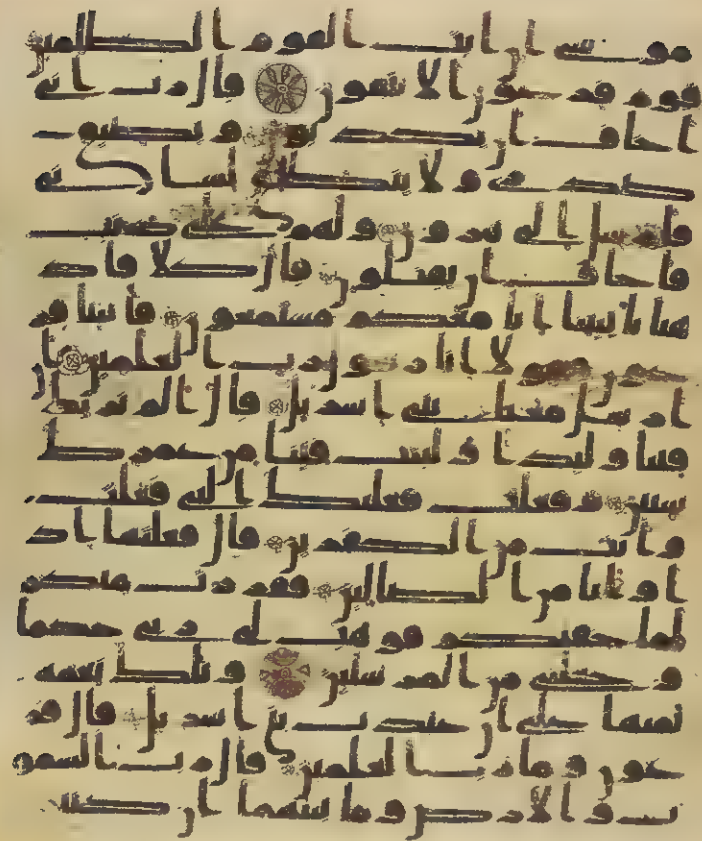 موسى ان ائت القوم الظلمين
قوم فرعون الا يتقون قال رب انى
اخاف ان يكذبون ويضيق
صدرى ولا ينطلق لسانى
فارسل الى هرون ولهم على ذنب
فاخاف ان يقتلون قال كلا فاذ
هبا بايتنا انا معكم مستمعون فاتيا فر
عون فقولا انا رسول رب العلمين ا
ن ارسل معنا بنى اسريل قال الم نربك
فينا وليدا ولبثت فينا من عمرك
سنين وفعلت فعلتك التى فعلت
وانت من الكفرين قال فعلتها اذ
ا وانا من الضالين ففررت منكم
لما خفتكم فوهب لى ربى حكما
وجعلنى من المرسلين وتلك نعمة
تمنها على ان عبدت بنى اسريل قال فر
عون وما رب العلمين قال رب السمو
ت والارض وما بينهما ان كنتم